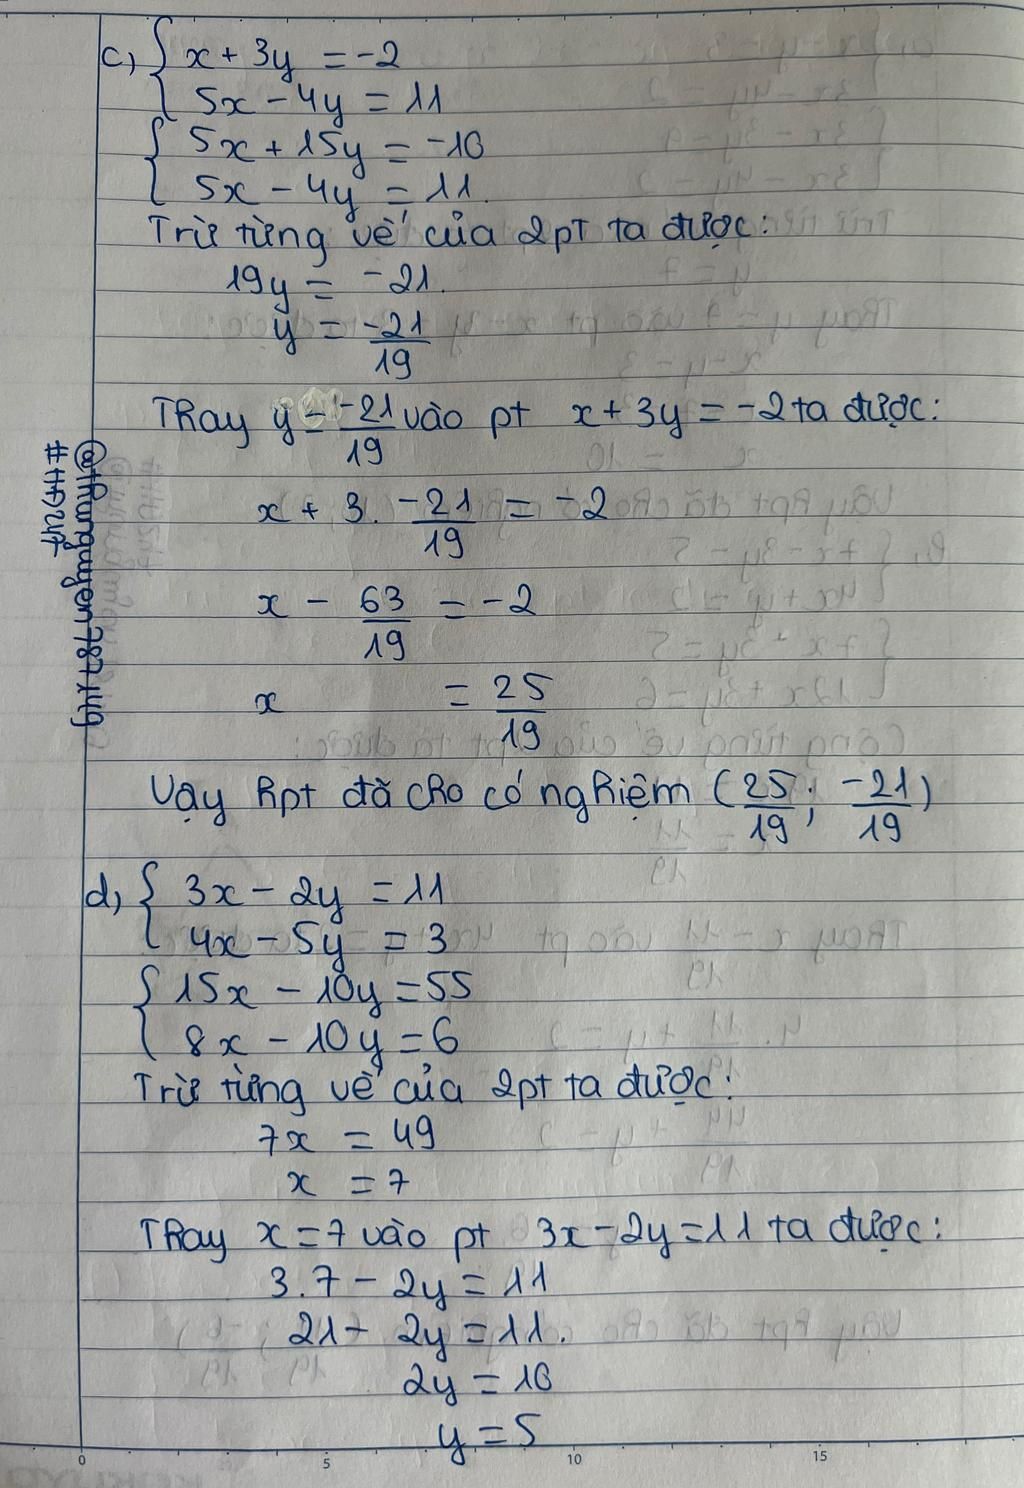 c, { x + 3y = -2
5x - 4y = 11
{ 5x + 15y = -10
5x - 4y = 11.
Trừ từng vế của 2pt ta được:
19y = -21.
y = -21/19
Thay y = -21/19 vào pt x + 3y = -2 ta được:
x + 3. -21/19 = -2
x - 63/19 = -2
x = 25/19
Vậy hpt đã cho có nghiệm (25/19; -21/19)
d, { 3x - 2y = 11
4x - 5y = 3
{ 15x - 10y = 55
8x - 10y = 6
Trừ từng vế của 2pt ta được:
7x = 49
x = 7
Thay x = 7 vào pt 3x - 2y = 11 ta được:
3.7 - 2y = 11
21 - 2y = 11.
2y = 10
y = 5
0 5 10 15